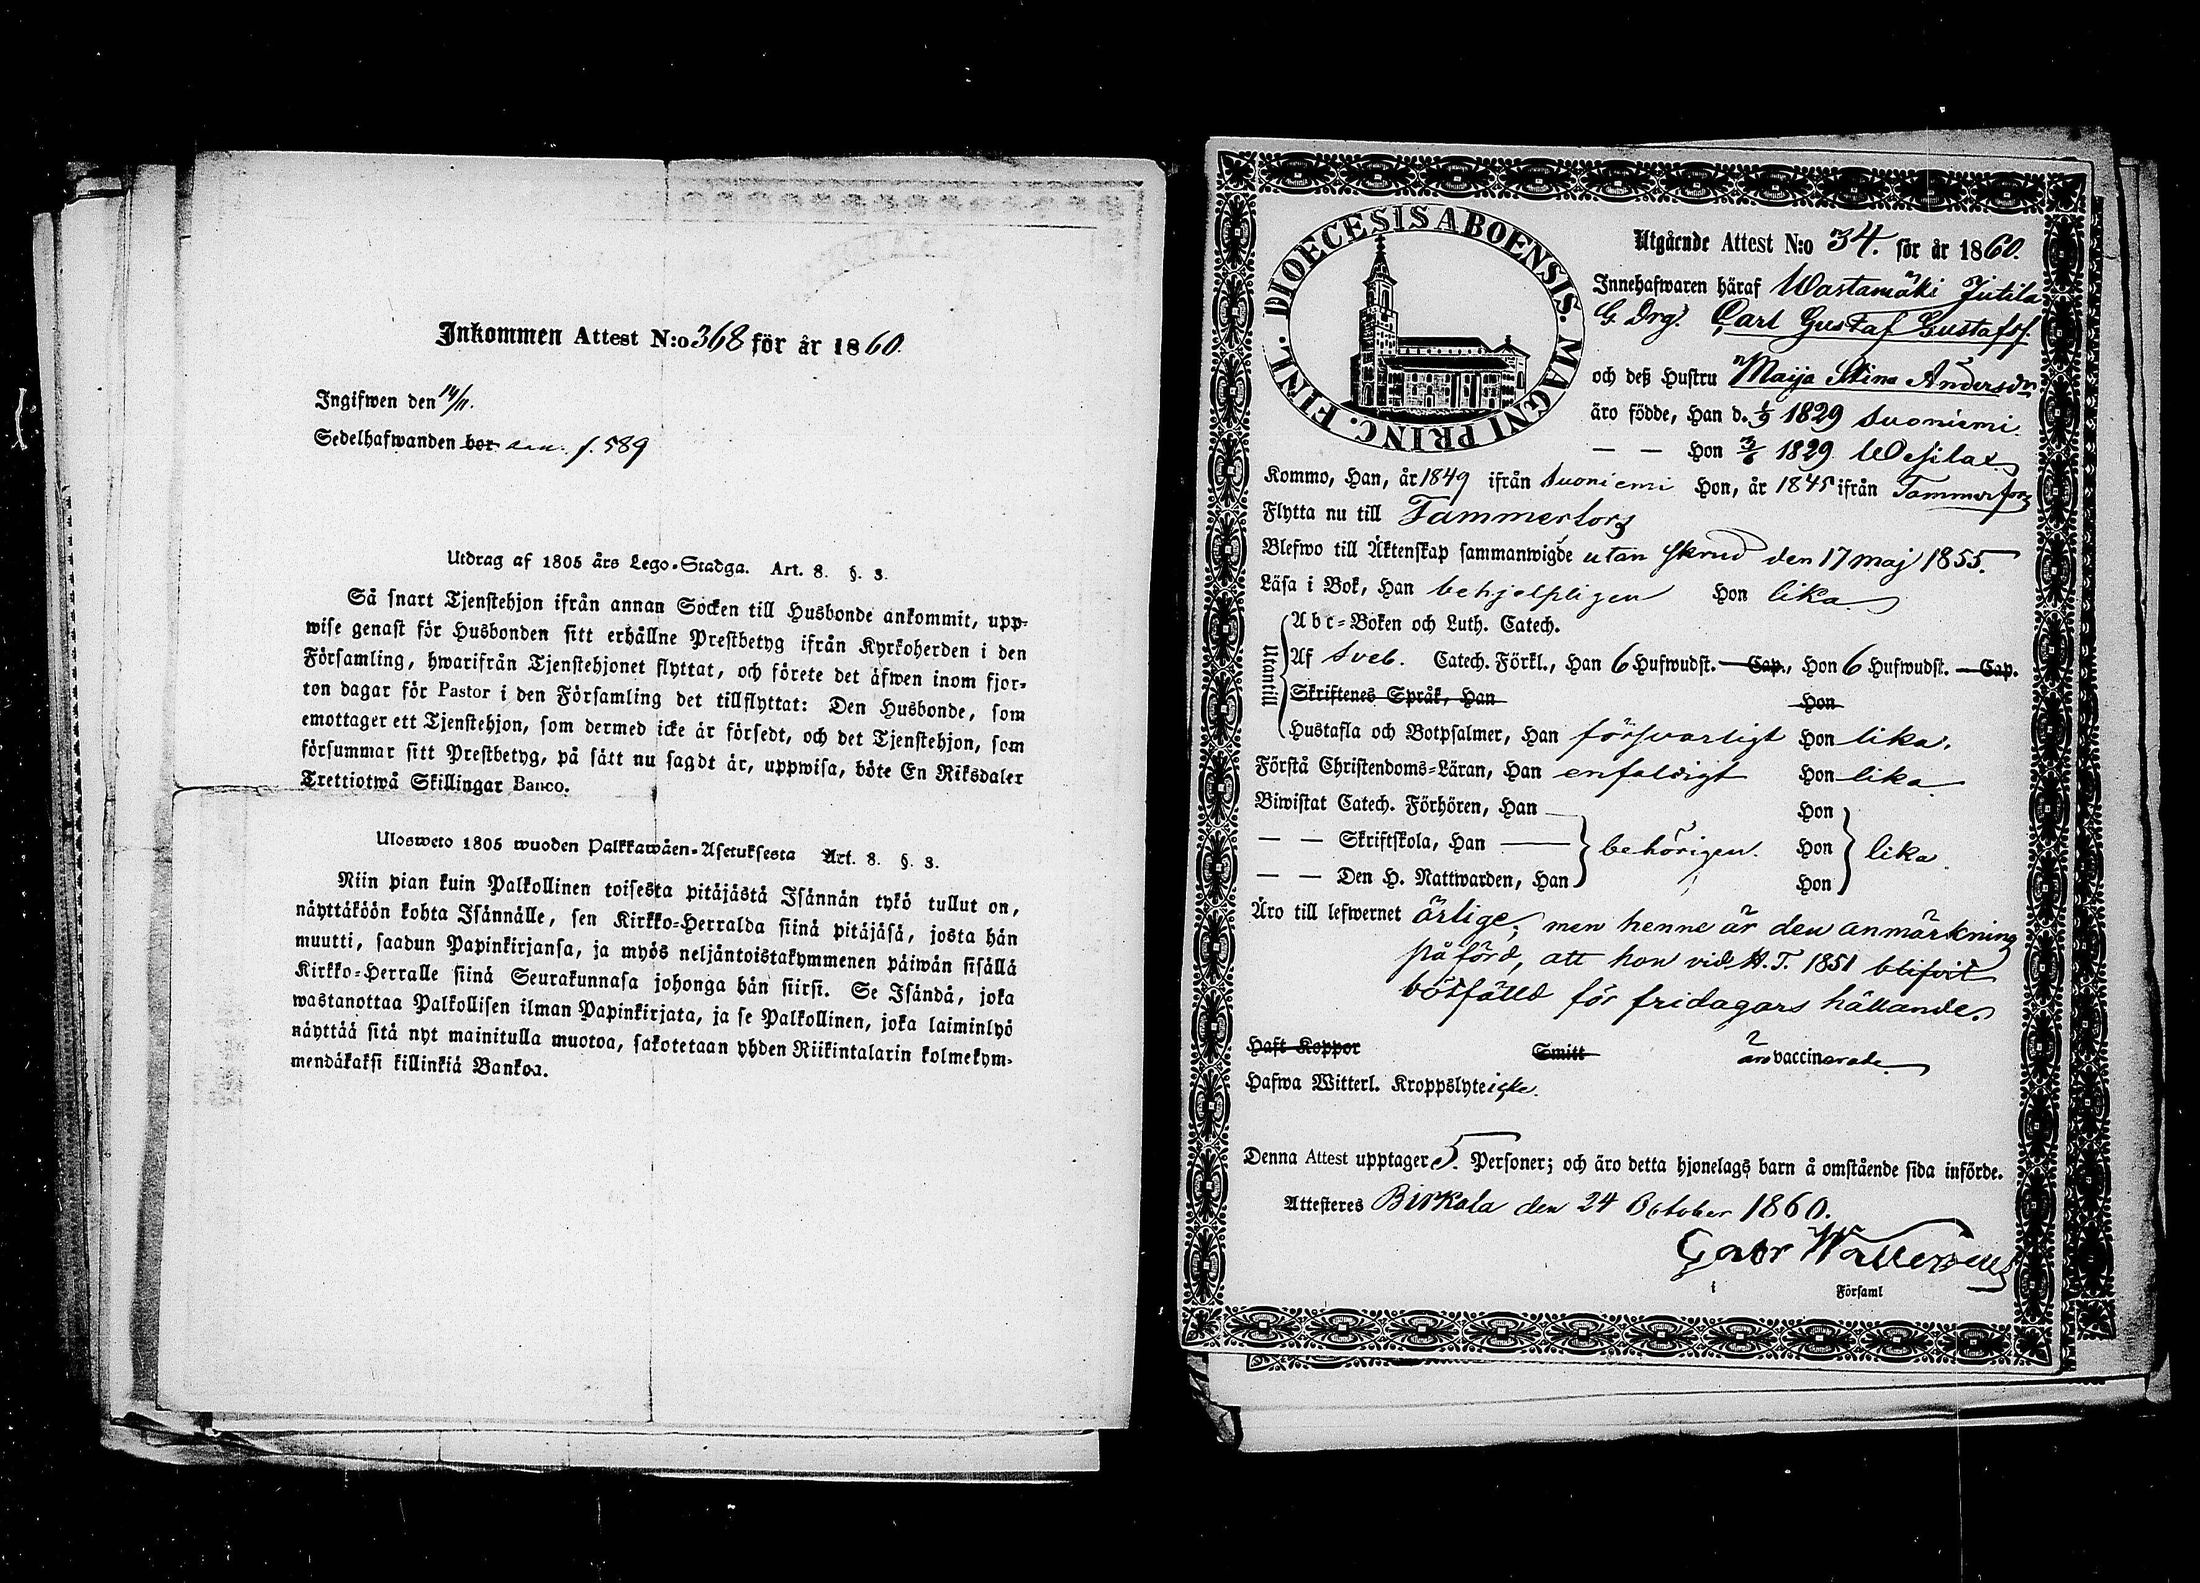 Inkommen Attest N:o 368 för år 1860.
Ingifwen den 14/11.
Sedelhafwanden bor f. 589
Utdrag af 1805 års Lego-Stadga. Art. 8. §. 3.
Så snart Tjenstehjon ifrån annan Socken till Husbonde ankommit, upp-
wise genast för Husbonden sitt erhållne Prestbetyg ifrån Kyrkoherden i den
Församling, hwarifrån Tjenstehjonet flyttat, och förete det äfwen inom fjor-
ton dagar för Pastor i den Församling det tillflyttat: Den Husbonde, som
emottager ett Tjenstehjon, som dermed icke är försedt, och det Tjenstehjon, som
försummar sitt Prestbetyg, på sätt nu sagdt är, uppwisa, böte En Riksdaler
Trettiotwå Skillingar Banco.
Ulosweto 1805 wuoden Palkkawäen-Asetuksesta Art. 8. §. 3.
Niin pian kuin Palkollinen toisesta pitäjästä Isännän tykö tullut on,
näyttäköön kohta Isännälle, sen Kirkko-Herralda siinä pitäjäsä, josta hän
muutti, saadun Papinkirjansa, ja myös neljäntoistakymmenen päiwän sisällä
Kirkko-Herralle siinä Seurakunnasa johonga hän siirsi. Se Isändä, joka
wastanottaa Palkollisen ilman Papinkirjata, ja se Palkollinen, joka laiminlyö
näyttää sitä nyt mainitulla muotoa, sakotetaan yhden Riikintalarin kolmekym-
mendäkaksi killinkiä Bankoa.
DIOECESIS ABOENSIS. MAGNI PRINC. FINL.
Utgående Attest N:o 34. för år 1860.
Innehafwaren häraf Wastamäki Jutila
G. Drg. Carl Gustaf Gustafss.
och deß Hustru Maija Stina Andersdr
äro födde, Han d. 1/3 1829 Suoniemi.
— — Hon 3/6 1829 Wesilax
Kommo, Han, år 1849 ifrån Suoniemi Hon, år 1845 ifrån Tammerfors
Flytta nu till Tammerfors
Blefwo till Äktenskap sammanwigde utan skrud den 17 maj 1855.
Läsa i Bok, Han behjelpligen Hon lika
Utantill
Abc-Boken och Luth. Catech.
Af Sveb. Catech. Förkl., Han 6 Hufwudst. — Cap., Hon 6 Hufwudst. — Cap.
Skriftenes Språk, Han Hon
Hustafla och Botpsalmer, Han försvarligt Hon lika.
Förstå Christendoms-Läran, Han enfaldigt Hon lika
Biwistat Catech. Förhören, Han Hon
— — Skriftskola, Han — behörigen. Hon lika.
— — Den H. Nattwarden, Han Hon
Äro till lefwernet ärlige; men henne är den anmärkning
påförd, att hon vid H.T. 1851 blifvit
botfälld för fridagars hållande.
Haft Koppor Smitt äro vaccinerade.
Hafwa Witterl. Kroppslyte icke.
Denna Attest upptager 5. Personer; och äro detta hjonelags barn å omstående sida införde.
Attesteres Birkala den 24 October 1860.
Gabr Wallenius
i Församl